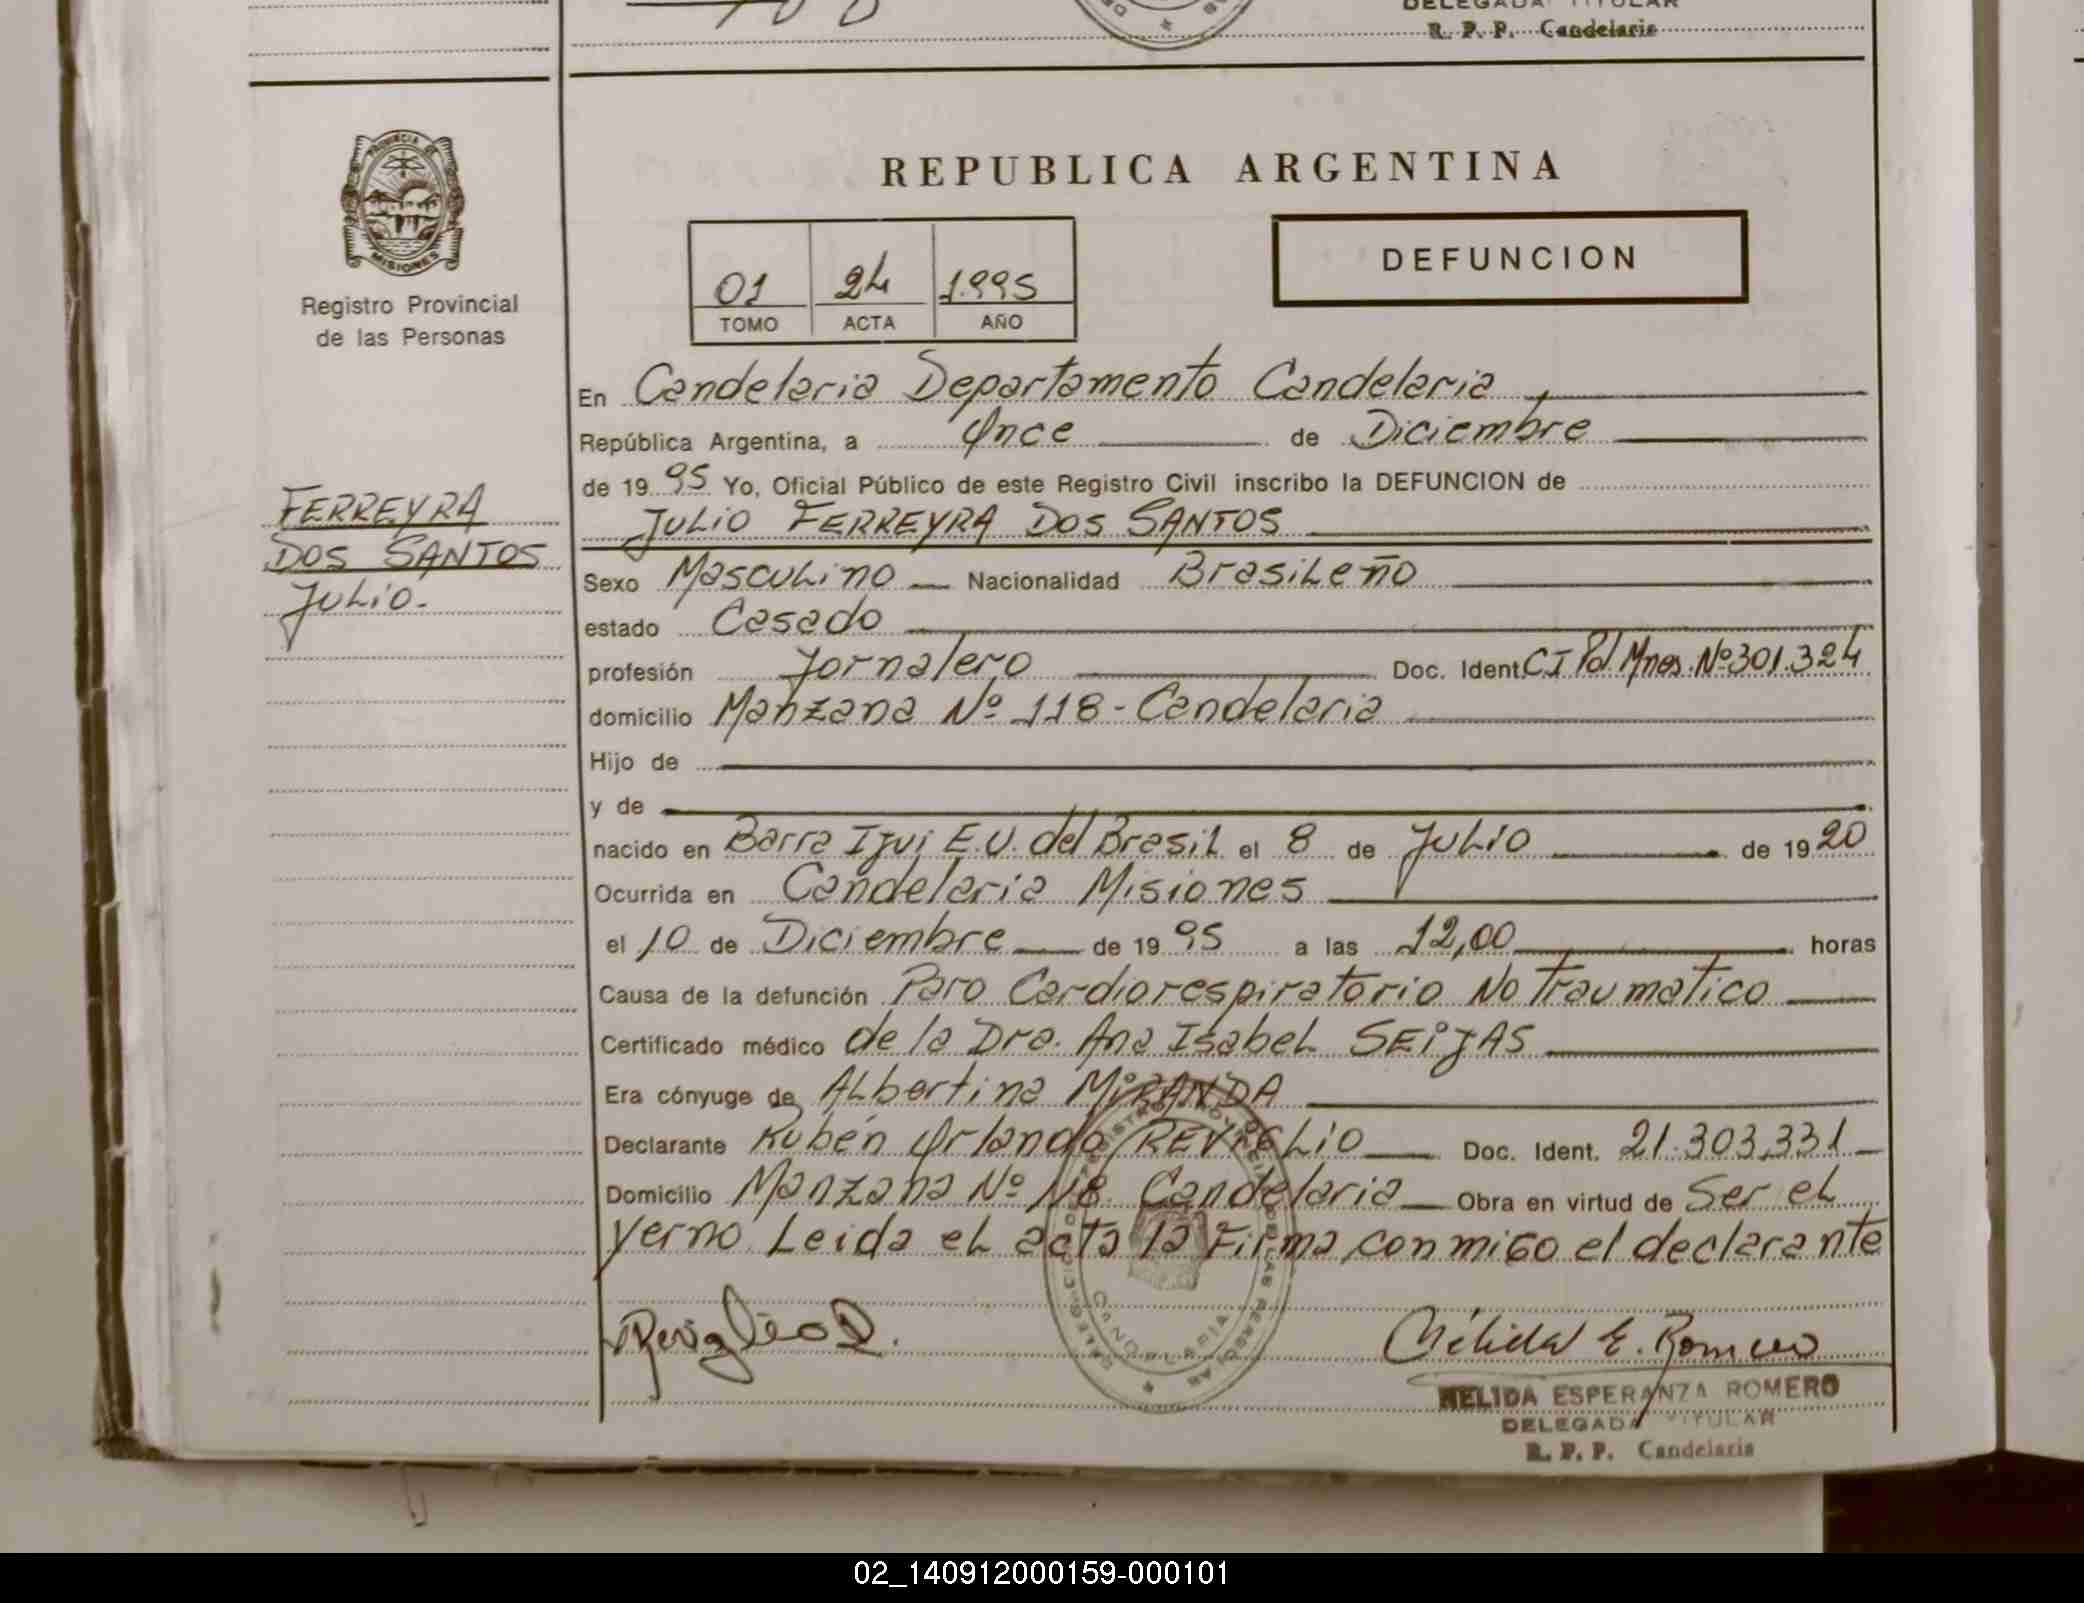 DELEGADA TITULAR
R. P. P. Candelaria
PROVINCIA DE
MISIONES
Registro Provincial
de las Personas
REPUBLICA ARGENTINA
01 24 1.995
TOMO ACTA AÑO
DEFUNCION
En Candelaria Departamento Candelaria
República Argentina, a Once de Diciembre
de 19 95 Yo, Oficial Público de este Registro Civil inscribo la DEFUNCION de
JULIO FERREYRA DOS SANTOS
FERREYRA
DOS SANTOS
JULIO.-
Sexo Masculino Nacionalidad Brasileño
estado Casado
profesión Jornalero Doc. Ident. CI Pol Mnes. Nº 301.324
domicilio Manzana Nº 118 - Candelaria
Hijo de
y de
nacido en Barra Ijui E.U. del Brasil el 8 de Julio de 19 20
Ocurrida en Candelaria Misiones
el 10 de Diciembre de 19 95 a las 12,00 horas
Causa de la defunción Paro Cardiorespiratorio No Traumatico
Certificado médico de la Dra. Ana Isabel SEIJAS
Era cónyuge de Albertina MIRANDA
Declarante Rubén Orlando REVIGLIO Doc. Ident. 21.303.331
Domicilio Manzana Nº 118 Candelaria Obra en virtud de Ser el
Yerno Leida el acta la Firma conmigo el declarante
Reviglio R.
Nélida E. Romero
NELIDA ESPERANZA ROMERO
DELEGADA TITULAR
R. P. P. Candelaria
02_140912000159-000101